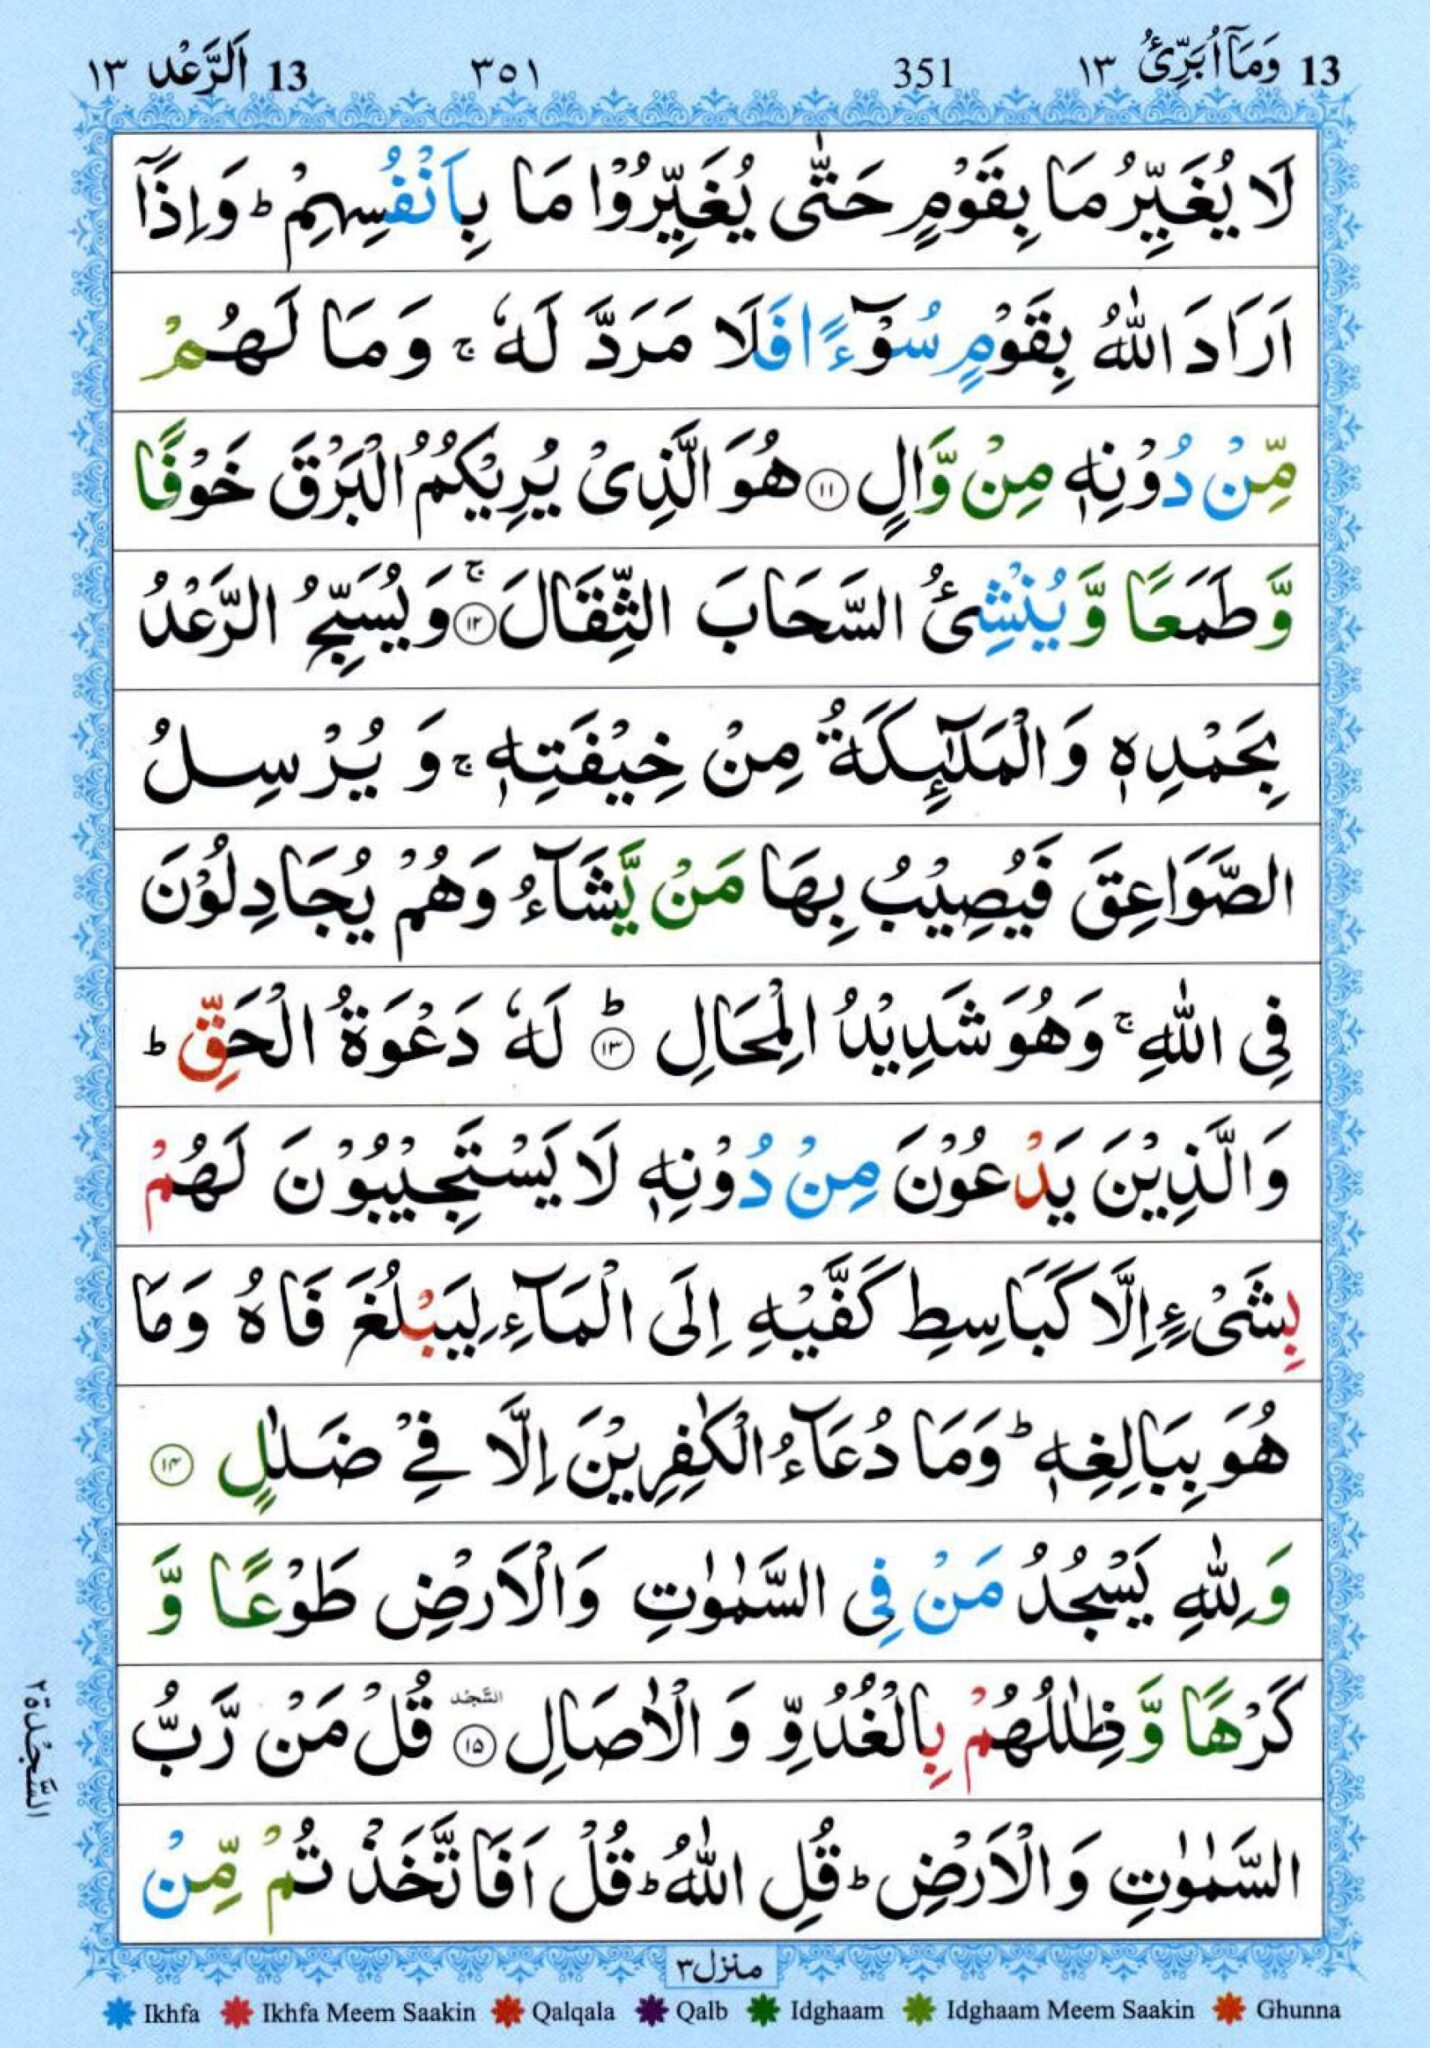 13 وَمَاۤ اُبَرِّئُ ۱۳ 351 ۳۵۱ 13 اَلرَّعْد ۱۳
لَا يُغَيِّرُ مَا بِقَوْمٍ حَتّٰى يُغَيِّرُوْا مَا بِاَنْفُسِهِمْ ؕ وَاِذَاۤ
اَرَادَ اللّٰهُ بِقَوْمٍ سُوْٓءًا فَلَا مَرَدَّ لَهٗ ۚ وَمَا لَهُمْ
مِّنْ دُوْنِهٖ مِنْ وَّالٍ ۱۱ هُوَ الَّذِىْ يُرِيْكُمُ الْبَرْقَ خَوْفًا
وَّطَمَعًا وَّيُنْشِئُ السَّحَابَ الثِّقَالَ ۚ ۱۲ وَيُسَبِّحُ الرَّعْدُ
بِحَمْدِهٖ وَالْمَلٰٓئِكَةُ مِنْ خِيْفَتِهٖ ۚ وَيُرْسِلُ
الصَّوَاعِقَ فَيُصِيْبُ بِهَا مَنْ يَّشَآءُ وَهُمْ يُجَادِلُوْنَ
فِى اللّٰهِ ۚ وَهُوَ شَدِيْدُ الْمِحَالِ ؕ ۱۳ لَهٗ دَعْوَةُ الْحَقِّ ؕ
وَالَّذِيْنَ يَدْعُوْنَ مِنْ دُوْنِهٖ لَا يَسْتَجِيْبُوْنَ لَهُمْ
بِشَىْءٍ اِلَّا كَبَاسِطِ كَفَّيْهِ اِلَى الْمَآءِ لِيَبْلُغَ فَاهُ وَمَا
هُوَ بِبَالِغِهٖ ؕ وَمَا دُعَآءُ الْكٰفِرِيْنَ اِلَّا فِىْ ضَلٰلٍ ۱۴
وَلِلّٰهِ يَسْجُدُ مَنْ فِى السَّمٰوٰتِ وَالْاَرْضِ طَوْعًا وَّ
كَرْهًا وَّظِلٰلُهُمْ بِالْغُدُوِّ وَالْاٰصَالِ السَّجْد ۱۵ قُلْ مَنْ رَّبُّ
السَّمٰوٰتِ وَالْاَرْضِ ؕ قُلِ اللّٰهُ ؕ قُلْ اَفَاتَّخَذْتُمْ مِّنْ
السَّجْدَة ۲
منزل ۳
Ikhfa Ikhfa Meem Saakin Qalqala Qalb Idghaam Idghaam Meem Saakin Ghunna